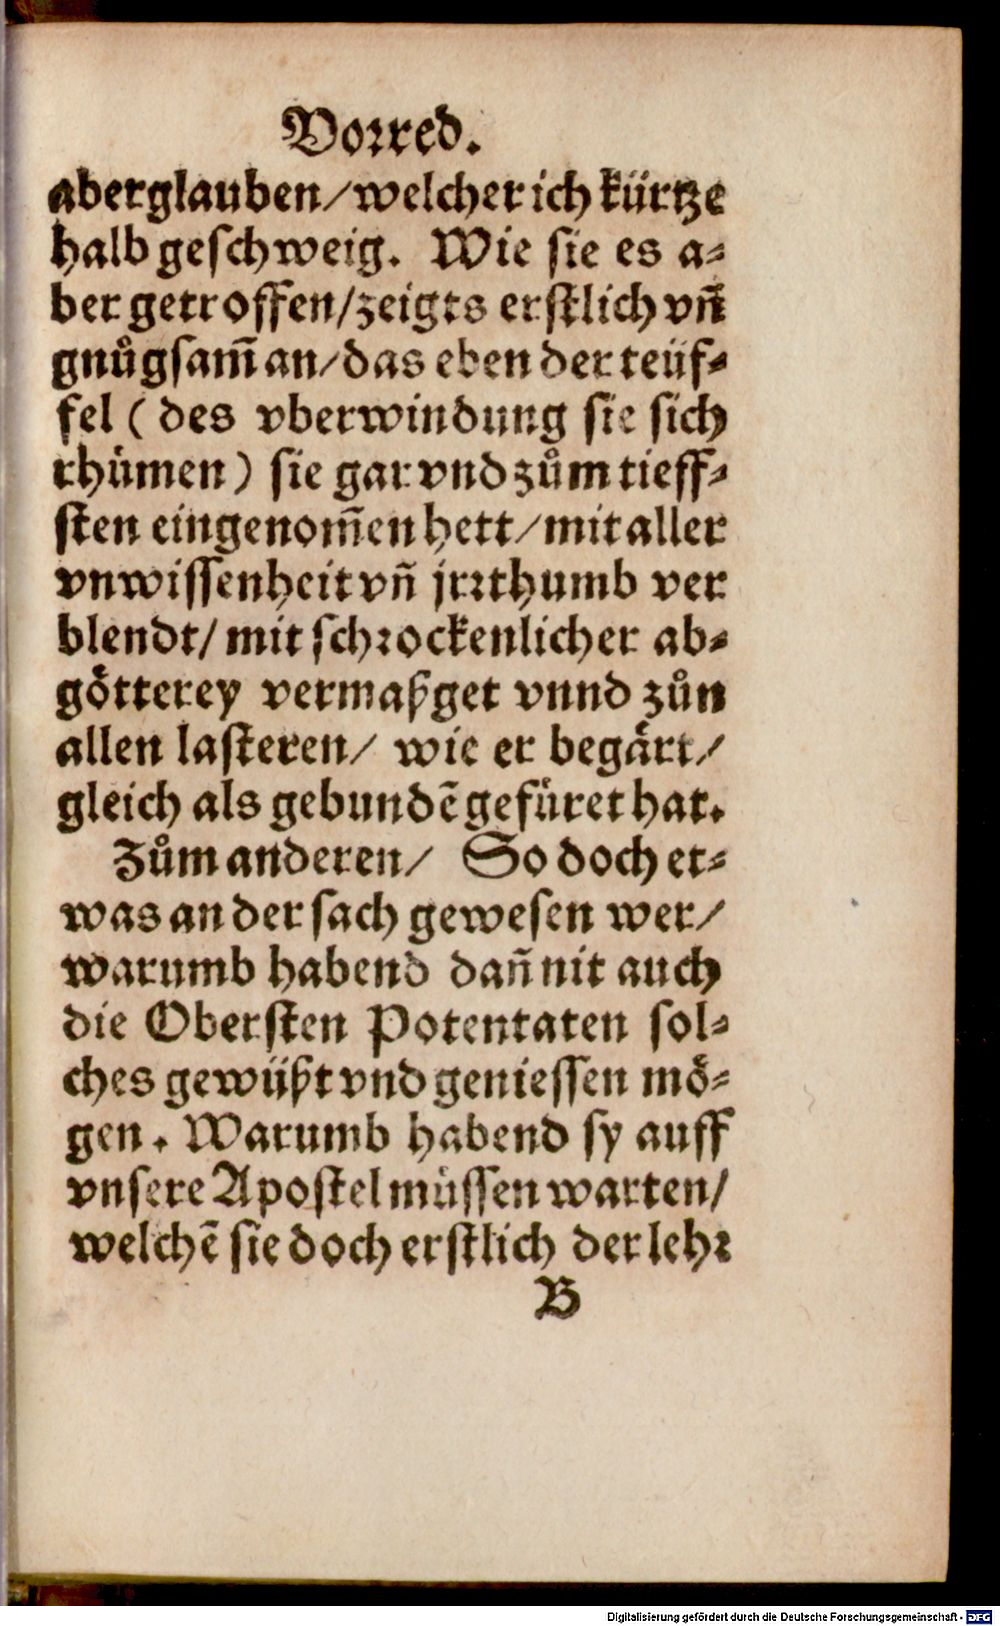 Vorred.
aberglauben/ welcher ich kürtze
halb geschweig. Wie sie es a-
ber getroffen/ zeigts erstlich vñ
gnůgsam̃ an/ das eben der teüf-
fel ( des vberwindung sie sich
rhümen ) sie gar vnd zům tieff-
sten eingenom̃en hett/ mit aller
vnwissenheit vñ jrrthumb ver
blendt/ mit schrockenlicher ab-
götterey vermaßget vnnd zůn
allen lasteren/ wie er begärt/
gleich als gebundẽ gefüret hat.
Zům anderen/ So doch et-
was an der sach gewesen wer/
warumb habend dañ nit auch
die Obersten Potentaten sol-
ches gewüßt vnd geniessen mö-
gen. Warumb habend sy auff
vnsere Apostel müssen warten/
welchẽ sie doch erstlich der lehr
B
Digitalisierung gefördert durch die Deutsche Forschungsgemeinschaft - DFG